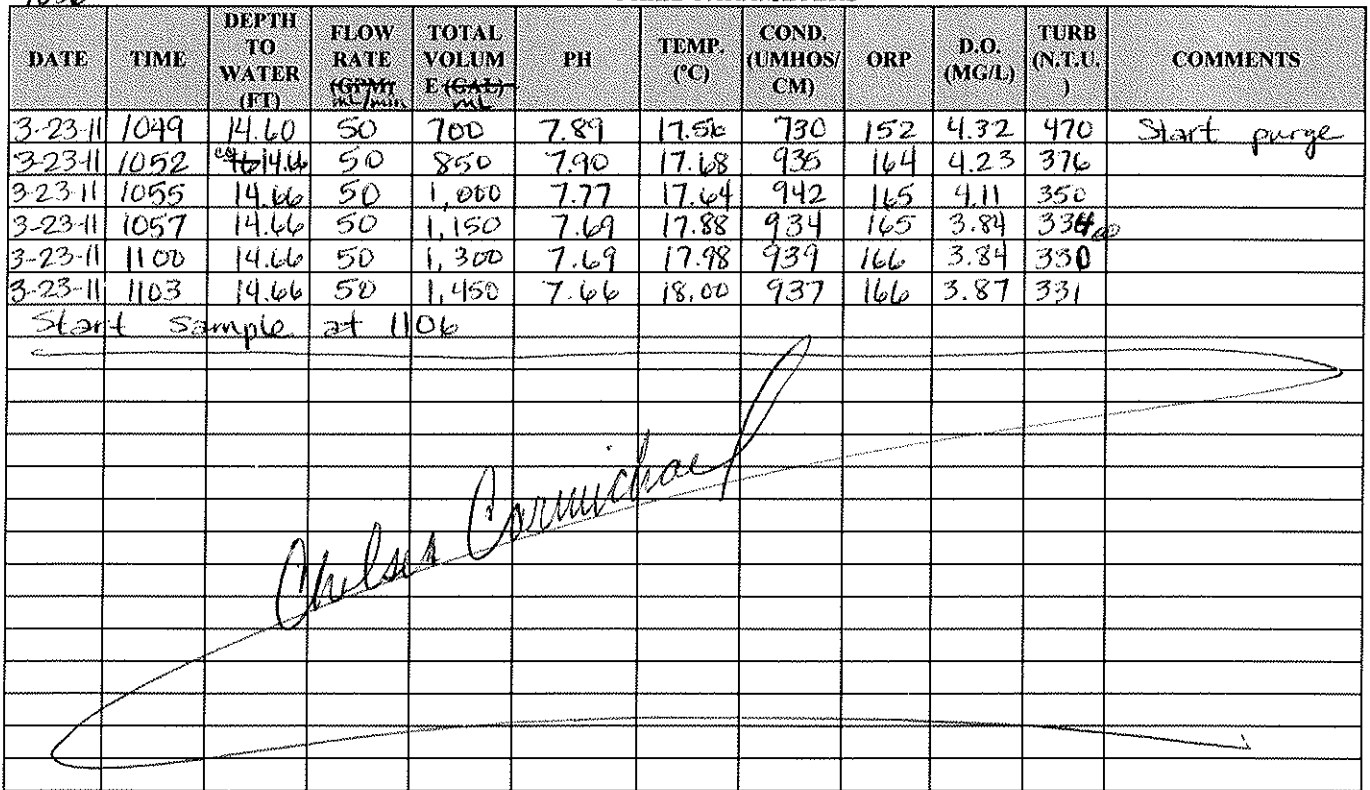 DATE TIME DEPTH TO WATER (FT) FLOW RATE (GPM) mL/min TOTAL VOLUM E (GAL) mL PH TEMP. (°C) COND. (UMHOS/ CM) ORP D.O. (MG/L) TURB (N.T.U. ) COMMENTS
3-23-11 1049 14.60 50 700 7.89 17.56 730 152 4.32 470 Start purge
3-23-11 1052 14.66 50 850 7.90 17.68 935 164 4.23 376
3-23-11 1055 14.66 50 1,000 7.77 17.64 942 165 4.11 350
3-23-11 1057 14.66 50 1,150 7.69 17.88 934 165 3.84 334
3-23-11 1100 14.66 50 1,300 7.69 17.98 939 166 3.84 330
3-23-11 1103 14.66 50 1,450 7.66 18.00 937 166 3.87 331
Start sample at 1106
Chelsea Carmichael